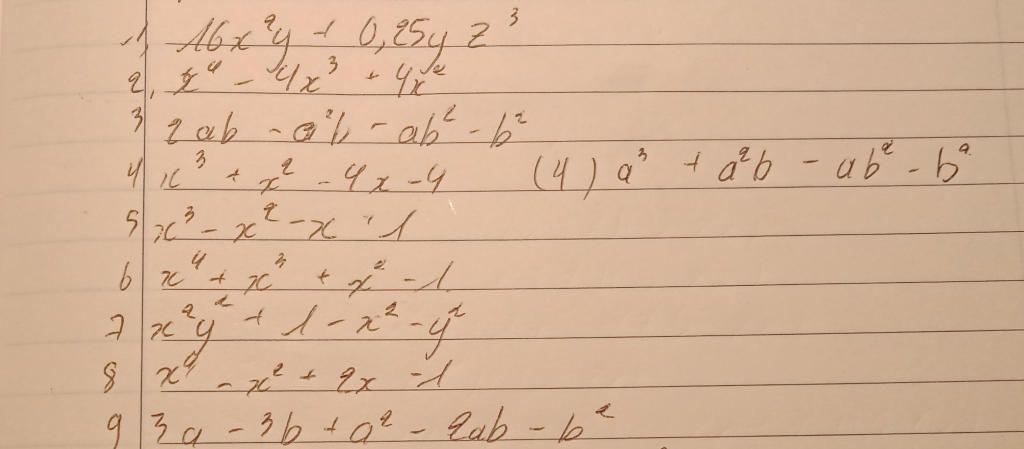 1, 16x²y + 0,25yz³
2, x⁴ - 4x³ + 4x²
3 2ab - a²b - ab² - b²
4 x³ + x² - 4x - 4 (4) a³ + a²b - ab² - b²
5 x³ - x² - x + 1
6 x⁴ + x³ + x² - 1
7 x²y² + 1 - x² - y²
8 x⁴ - x² + 2x - 1
9 3a - 3b + a² - 2ab - b²